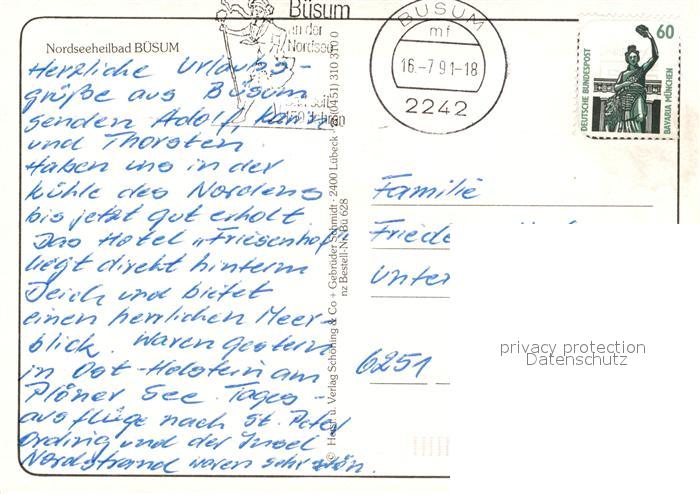 Nordseeheilbad BÜSUM
Herzliche Urlaubs-
grüße aus Büsum
senden Adolf, Karin
und Thorsten.
Haben uns in der
Kühle des Nordens
bis jetzt gut erholt.
Das Hotel "Friesenhof"
liegt direkt hinterm
Deich und bietet
einen herrlichen Meer-
blick. Waren gestern
in Ost-Holstein am
Plöner See. Tages-
ausflüge nach St. Peter
Ording und der Insel
Nordstrand waren sehr schön.
Büsum
an der
Nordsee
BÜSUM
mf
16.-7.91-18
2242
60
DEUTSCHE BUNDESPOST
BAVARIA MÜNCHEN
© Horst u. Verlag Schöning & Co + Gebrüder Schmidt · 2400 Lübeck · ☎ (0451) 310 310 0
nz Bestell-Nr. Bü 628
Familie
Friede
Unter
6251
privacy protection
Datenschutz